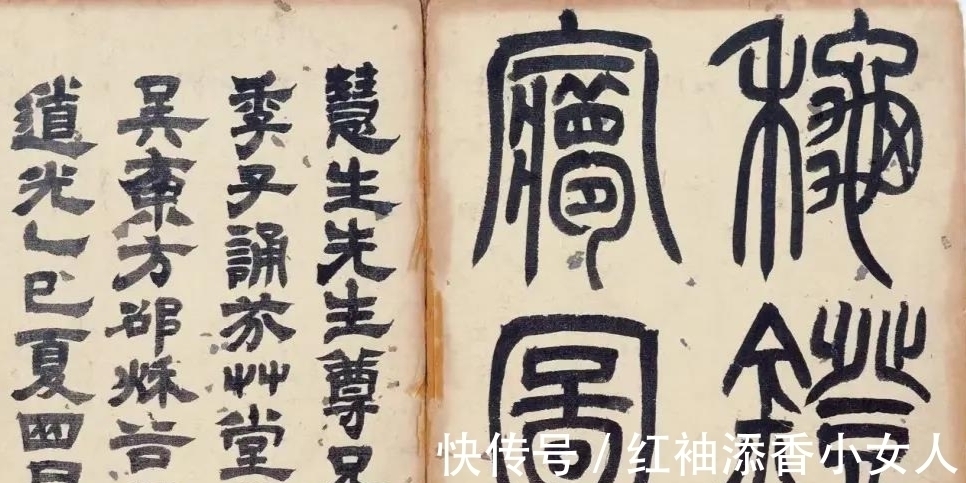 龝鐙㝱圖
慧生先生尊兄
季子誦芬艸堂
吳東方邵
道光乙巳夏四月
快传号 / 红袖添香小女人